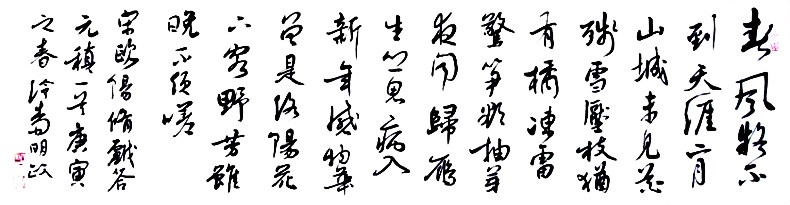 春風疑不
到天涯二月
山城未見花
殘雪壓枝猶
有橘凍雷
驚筍欲抽芽
夜聞歸雁
生鄉思病入
新年感物華
曾是洛陽花
下客野芳雖
晚不須嗟
宋歐陽脩戲答
元稹一首庚寅
之春 嵩明